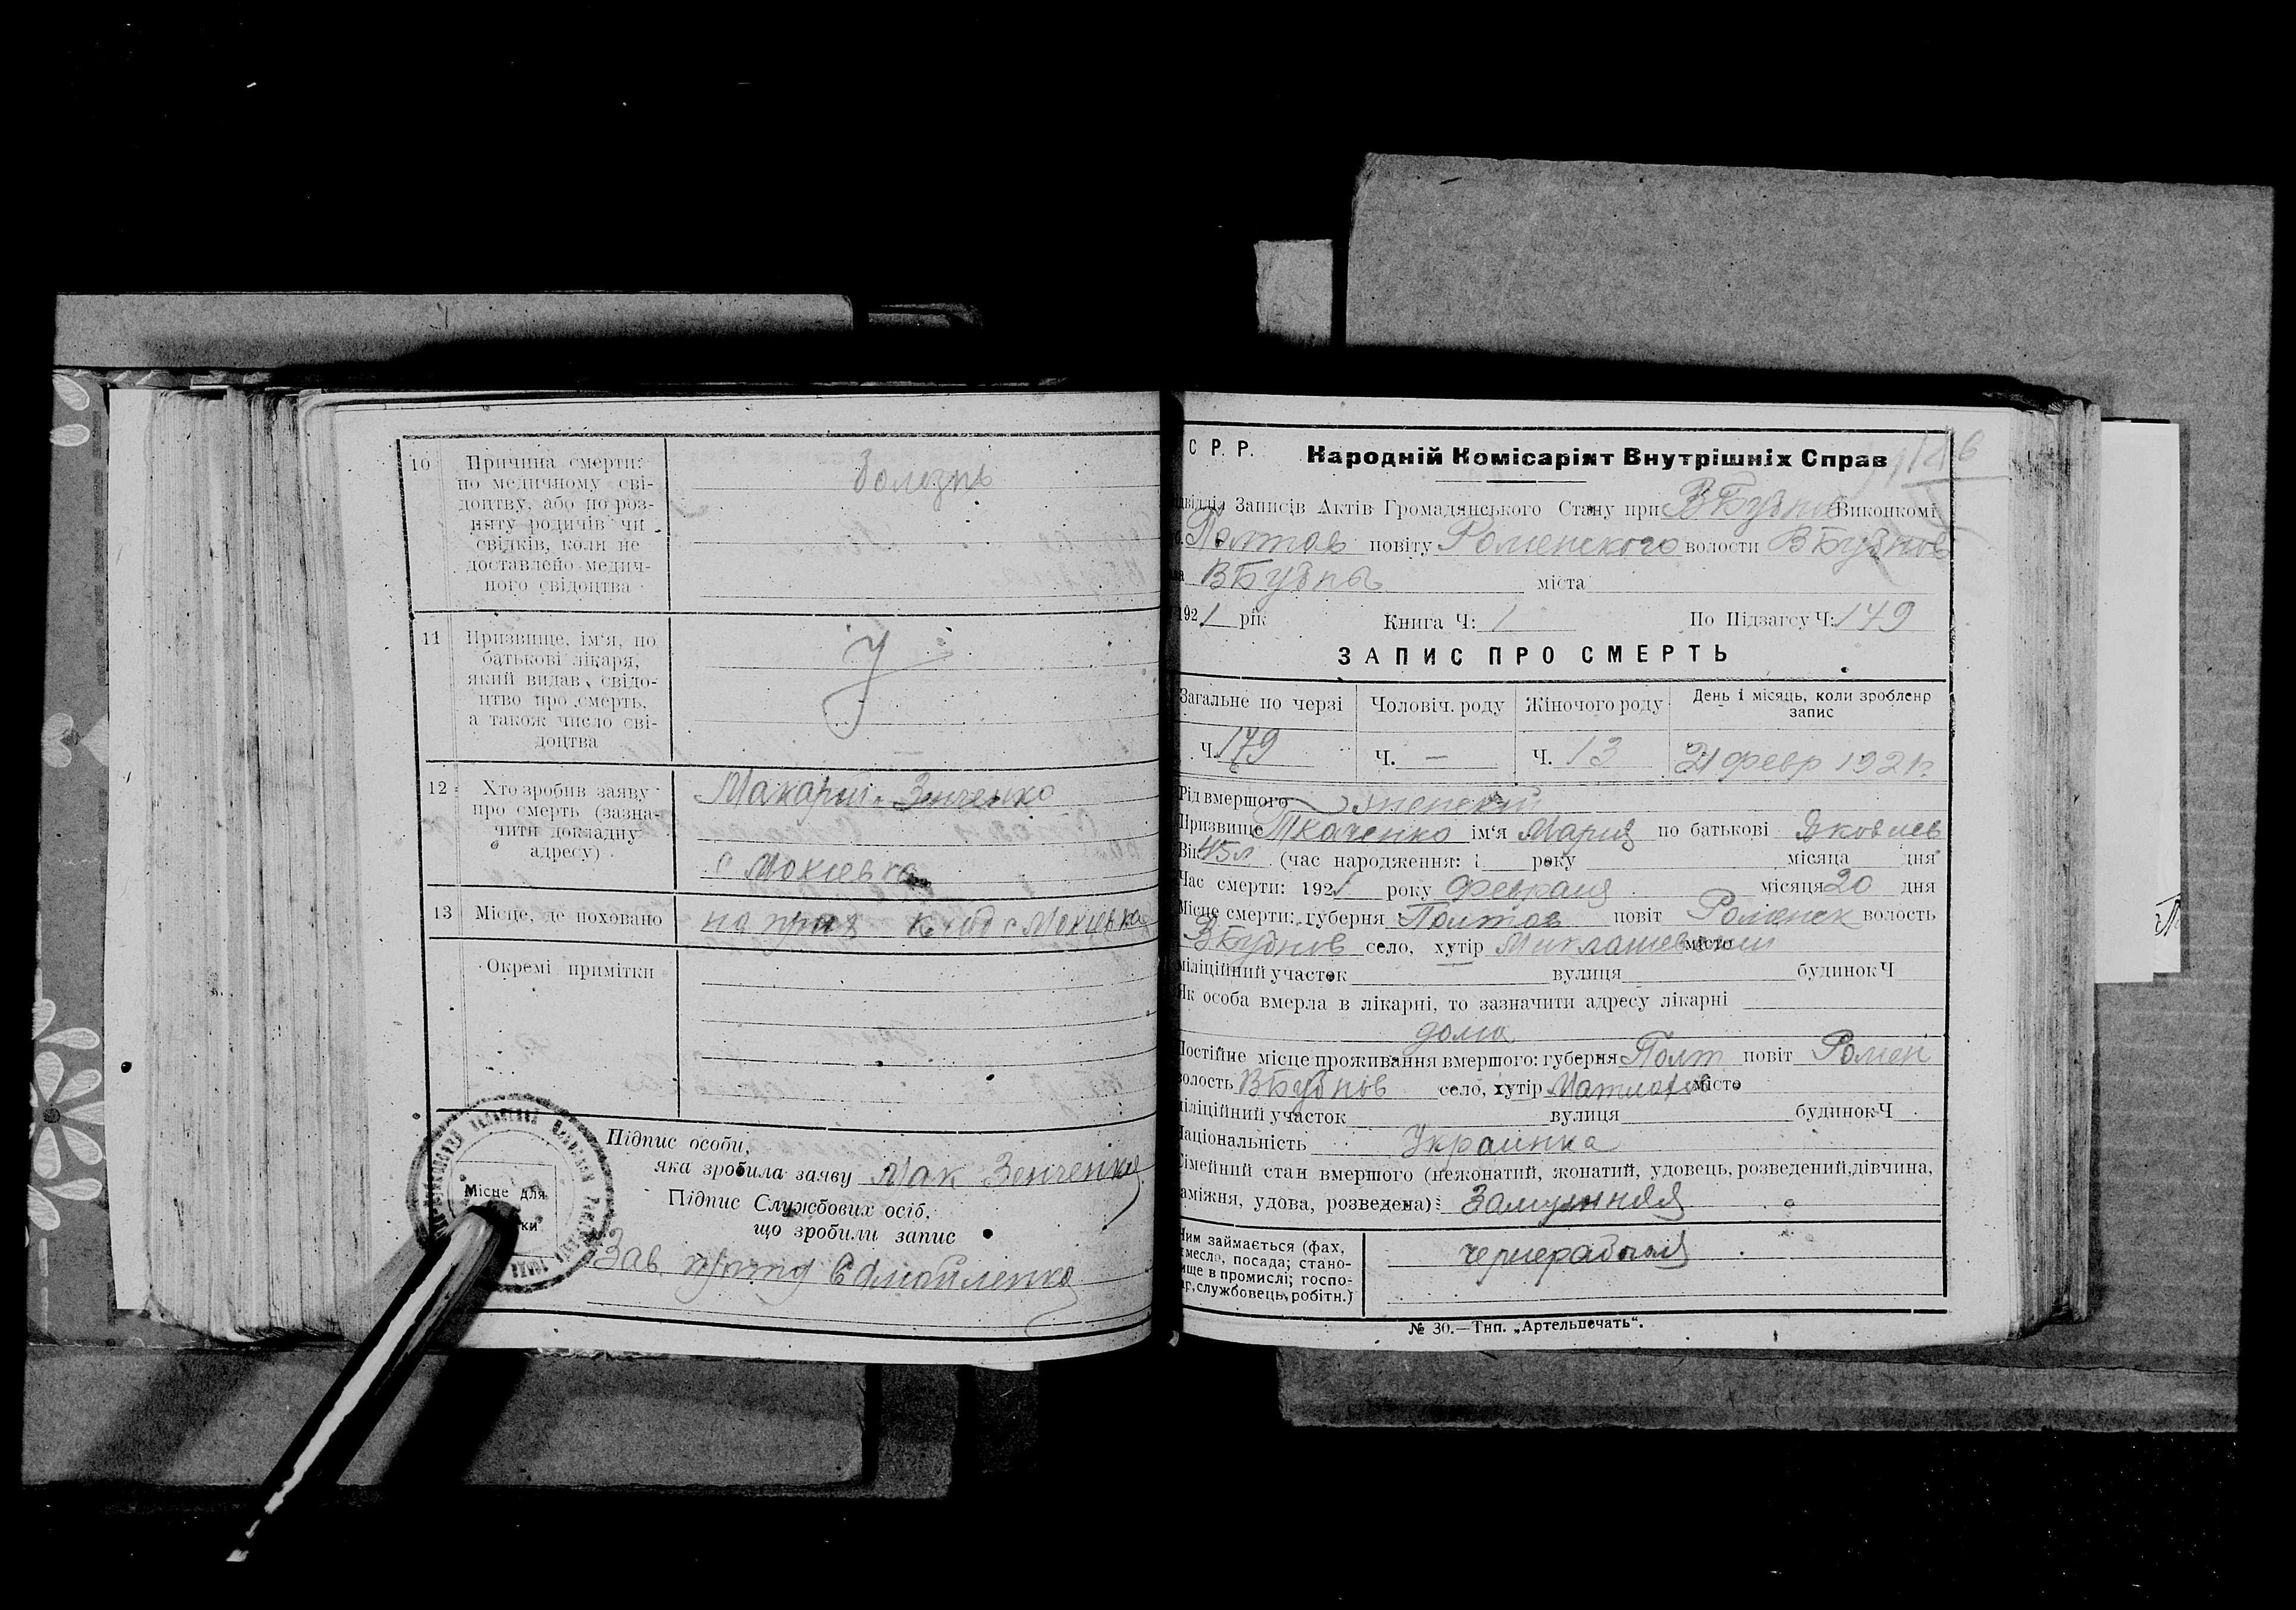 10 Причина смерти: Болезнь
по медичному сві-
доцтву, або по роз-
питу родичів чи
свідків, коли не
доставлено медич-
ного свідоцтва
11 Призвище, ім'я, по
батькові лікаря,
який видав свідо-
цтво про смерть,
а також число сві-
доцтва
12 Хто зробив заяву Макарий Зенченко
про смерть (зазна-
чити докладну
адресу) с Мокіевка
13 Місце, де поховано на прих клад с Мокіевка
Окремі примітки
Підпис особи,
яка зробила заяву Мак Зенченко
Підпис Службових осіб,
що зробили запис
Місце для
ки
Зав
С Р. Р. Народній Комісаріят Внутрішніх Справ
146
ідвідділ Записів Актів Громадянського Стану при ВБубнов Виконкомі
Полтав повіту Роменского волости ВБубнов
ВБубны міста
1921 рік Книга Ч: 1 По Підзагсу Ч: 179
ЗАПИС ПРО СМЕРТЬ
Загальне по черзі Чоловіч. роду Жіночого роду День і місяць, коли зроблено
запис
Ч. 179 Ч. — Ч. 13 21 февр 1921 г.
Рід вмершого Женский
Призвище Ткаченко ім'я Мария по батькові Яковлев
Вік 45 л (час народження: і року місяця дня
Час смерти: 1921 року Февраля місяця 20 дня
Місце смерти: губерня Полтав повіт Роменск волость
ВБубнов село, хутір Миклашевский місто
міліційний участок вулиця будинок Ч
Як особа вмерла в лікарні, то зазначити адресу лікарні
дома
Постійне місце проживання вмершого: губерня Полт повіт Ромен
волость ВБубнов село, хутір місто
міліційний участок вулиця будинок Ч
Національність Украинка
Сімейний стан вмершого (нежонатий, жонатий, удовець, розведений, дівчина,
заміжня, удова, розведена): Замужняя
Чим займається (фах,
ремесло, посада; стано-
вище в промислі; госпо-
дар, службовець, робітн.) чернерабочая
№ 30.—Тип. „Артельпечать“.